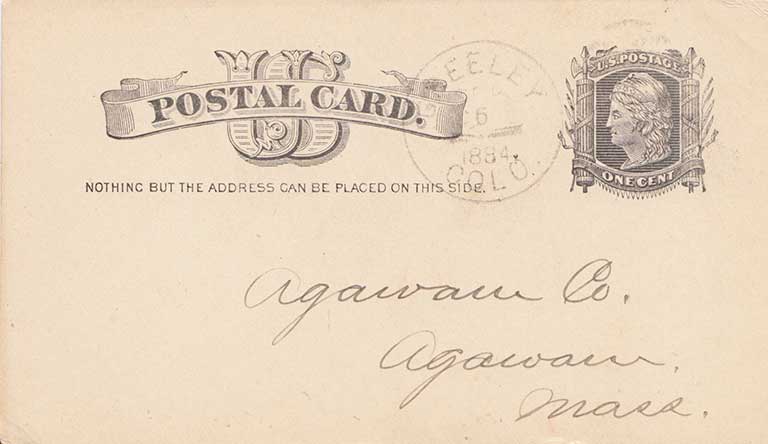 US
POSTAL CARD.
NOTHING BUT THE ADDRESS CAN BE PLACED ON THIS SIDE.
EELEY
6
1884.
COLO.
U.S. POSTAGE
ONE CENT
Agawam Co.
Agawam.
Mass.